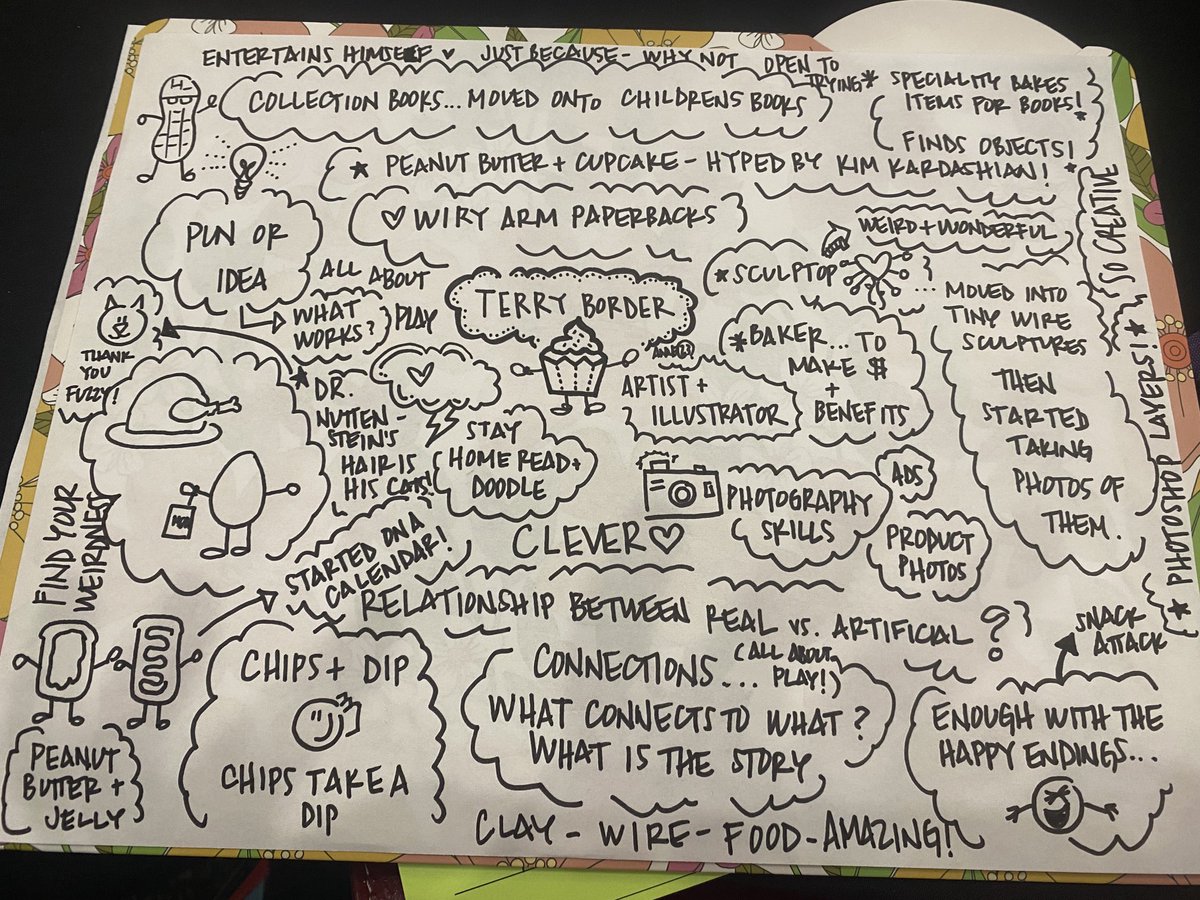 ENTERTAINS HIMSELF ♥ JUST BECAUSE - WHY NOT
OPEN TO
TRYING*
COLLECTION BOOKS... MOVED ONTO CHILDRENS BOOKS
SPECIALITY BAKES
ITEMS FOR BOOKS!
FINDS OBJECTS!
* PEANUT BUTTER + CUPCAKE - HYPED BY KIM KARDASHIAN! *
SO CREATIVE
PUN OR
IDEA
♡ WIRY ARM PAPERBACKS
WEIRD + WONDERFUL
ALL ABOUT
PLAY
WHAT
WORKS?
TERRY BORDER
ARTIST +
ILLUSTRATOR
*SCULPTOR
...
MOVED INTO
TINY WIRE
SCULPTURES
THEN
STARTED
TAKING
PHOTOS OF
THEM.
*BAKER... TO
MAKE $
+
BENEFITS
* PHOTOSHOP LAYERS! *
THANK
YOU
FUZZY!
* DR.
NUTTEN-
STEIN'S
HAIR IS
HIS CATS!
STAY
HOME READ +
DOODLE
PHOTOGRAPHY
SKILLS
ADS
PRODUCT
PHOTOS
FIND YOUR
WEIRDNEST
CLEVER ♡
STARTED ON A
CALENDAR!
RELATIONSHIP BETWEEN REAL VS. ARTIFICIAL ?
SNACK
ATTACK
CHIPS + DIP
CHIPS TAKE A
DIP
CONNECTIONS... (ALL ABOUT
PLAY!)
WHAT CONNECTS TO WHAT?
WHAT IS THE STORY
ENOUGH WITH THE
HAPPY ENDINGS...
PEANUT
BUTTER +
JELLY
CLAY - WIRE - FOOD - AMAZING!